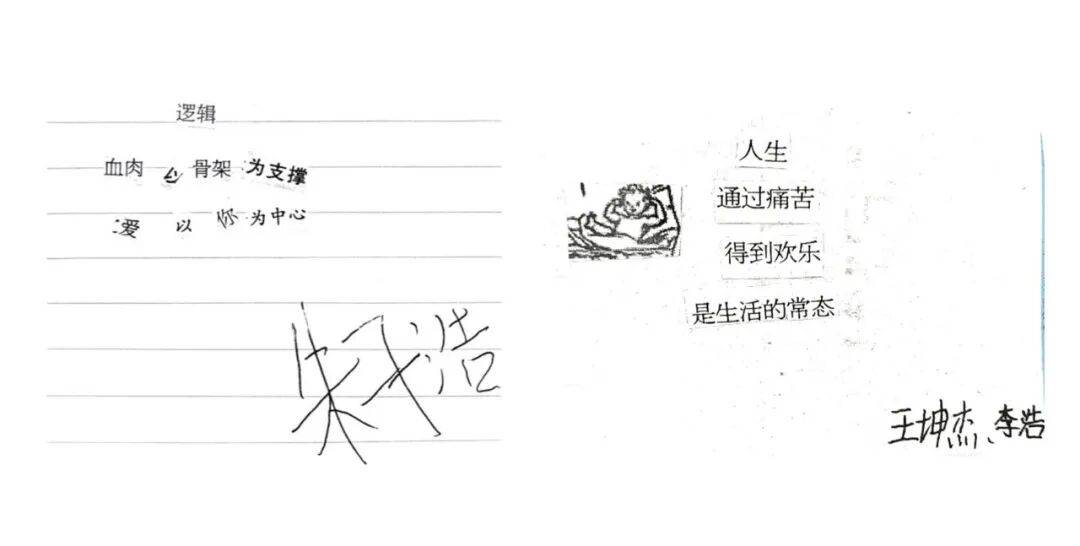 逻辑
血肉 以 骨架 为支撑
爱 以 你 为中心
人生
通过痛苦
得到欢乐
是生活的常态
王坤杰、李浩